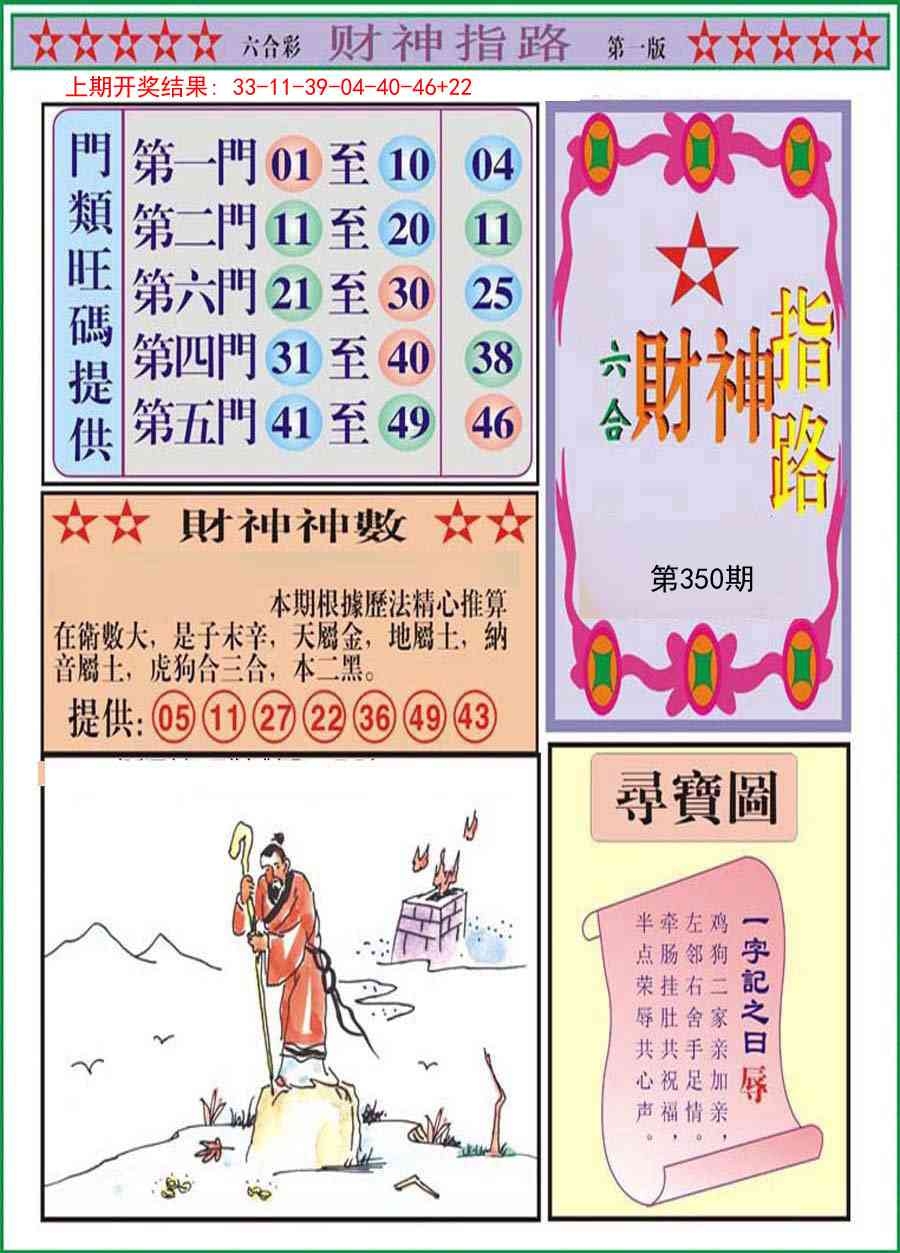 六合彩 财神指路 第一版
上期开奖结果: 33-11-39-04-40-46+22
門類旺碼提供
第一門 01 至 10 04
第二門 11 至 20 11
第六門 21 至 30 25
第四門 31 至 40 38
第五門 41 至 49 46
六合
財神
指路
第350期
財神神數
本期根據歷法精心推算
在術數大，是子末辛，天屬金，地屬土，納
音屬土，虎狗合三合，本二黑。
提供: 05 11 27 22 36 49 43
尋寶圖
一字記之曰 辱
鸡狗二家亲加亲，
左邻右舍手足情。
牵肠挂肚共祝福，
半点荣辱共心声。